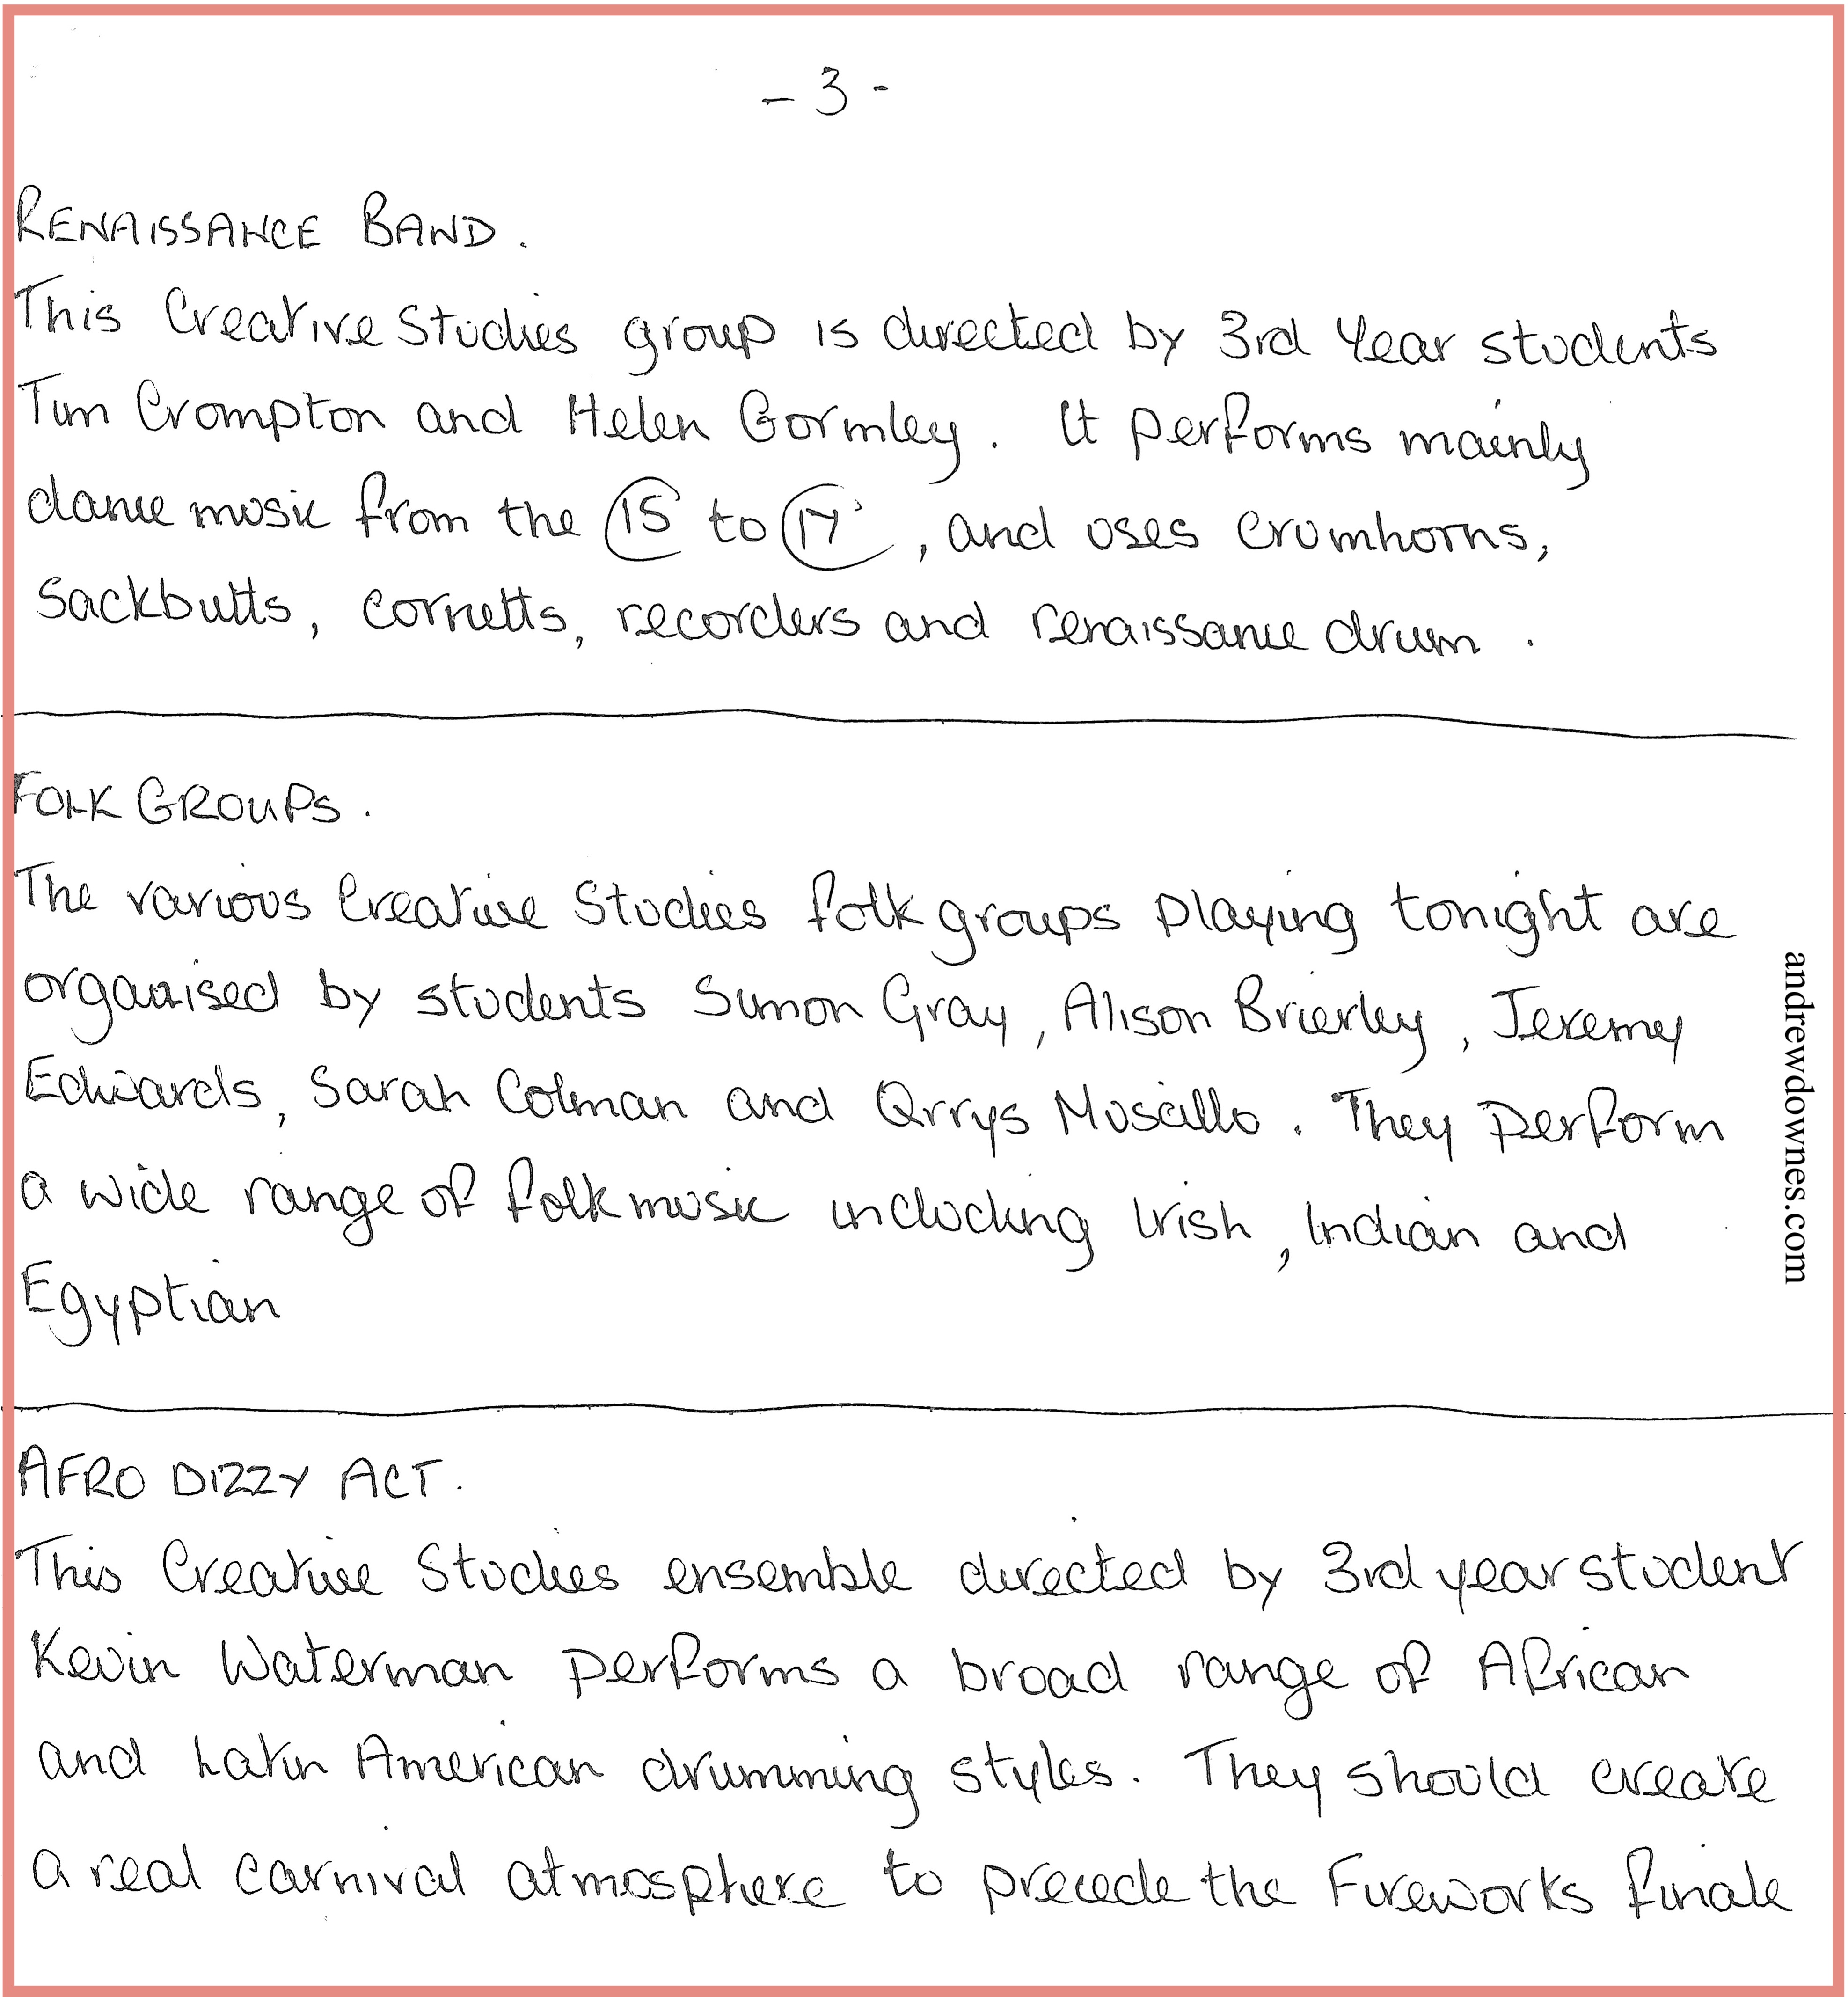 - 3 -
RENAISSANCE BAND.
This Creative Studies group is directed by 3rd Year students
Tim Crompton and Helen Gormley. It performs mainly
dance music from the 15 to 17, and uses crumhorns,
sackbutts, cornetts, recorders and renaissance drum.
FOLK GROUPS.
The various Creative Studies folk groups playing tonight are
organised by students Simon Gray, Alison Brierley, Jeremy
Edwards, Sarah Colman and Muscillo. They perform
a wide range of folk music including Irish, Indian and
Egyptian
AFRO DIZZY ACT.
This Creative Studies ensemble directed by 3rd year student
Kevin Waterman performs a broad range of African
and Latin American drumming styles. They should create
a real carnival atmosphere to precede the Fireworks finale
andrewdownes.com